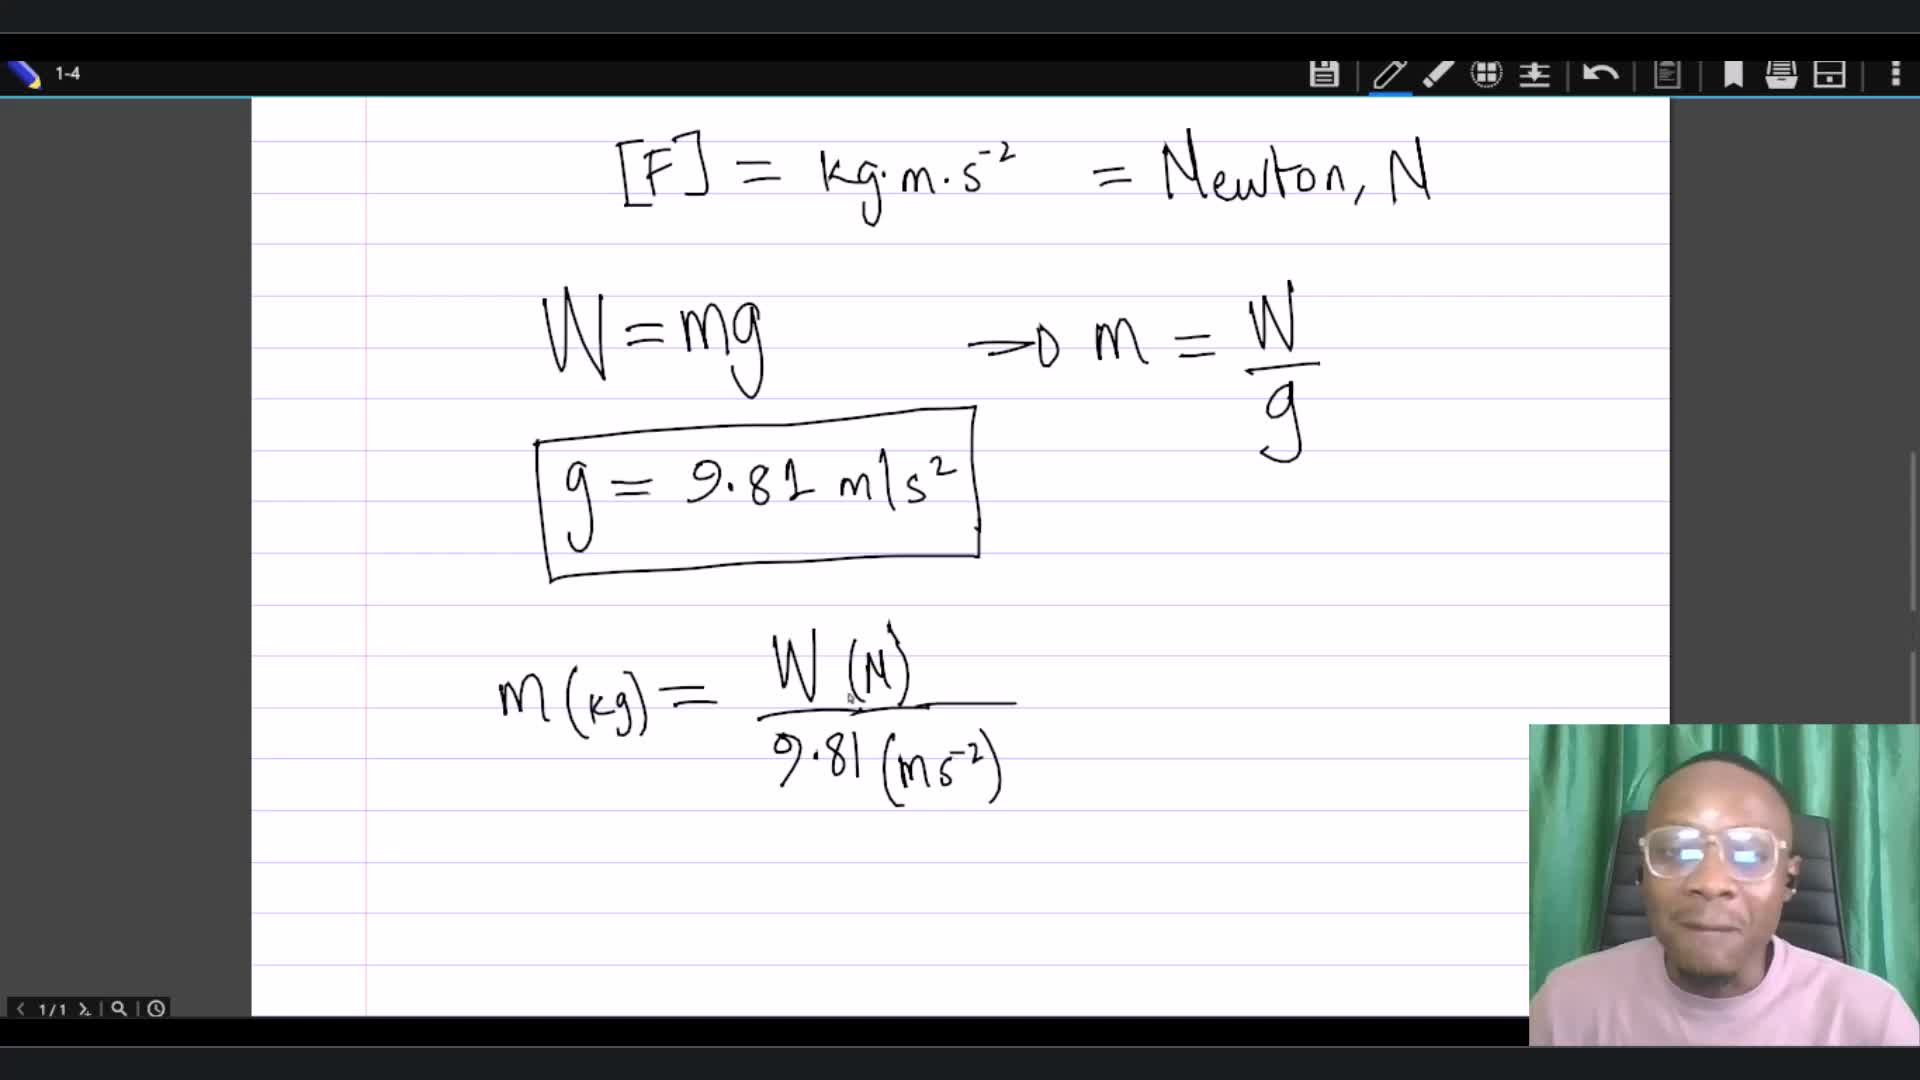 1-4
[F] = kg·m·s⁻² = Newton, N
W = mg → m = W/g
g = 9.81 m/s²
m (kg) = W (N) / 9.81 (ms⁻²)
1/1